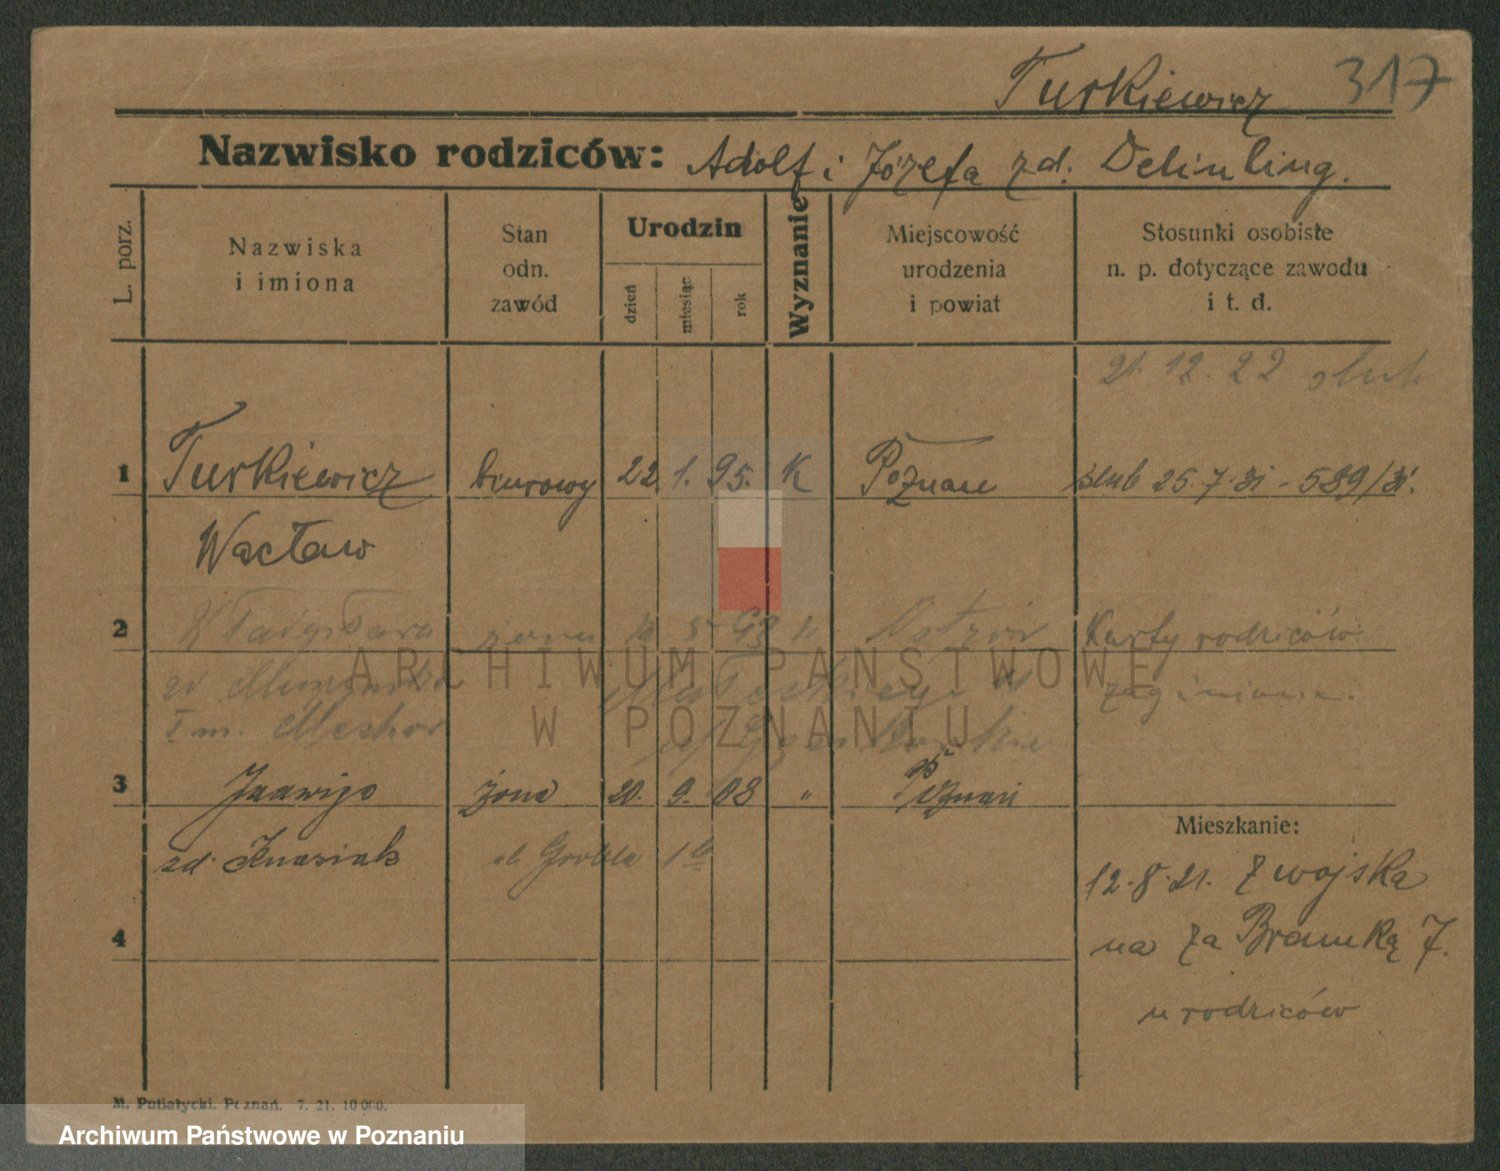 Turkiewicz 317
Nazwisko rodziców: Adolf i Józefa zd.
L. porz.
Nazwiska
i imiona
Stan
odn.
zawód
Urodzin
dzień
miesiąc
rok
Wyznanie
Miejscowość
urodzenia
i powiat
Stosunki osobiste
n. p. dotyczące zawodu
i t. d.
21. 12. 22 ślub
1 Turkiewicz biurowy 22 1. 95. K Poznań ślub 25. 7. 31 - 589/31.
Wacław
2 żona 5 93 Karty rodziców
zaginione.
3 Jadwiga żona 20. 9. 08 " Poznań
zd.
Mieszkanie:
ul Grobla 1a
12. 8. 21. z wojska
4 na za Bramką 7.
u rodziców
M. Putiatycki. Poznań. 7. 21. 10 000.
ARCHIWUM PAŃSTWOWE
W POZNANIU
Archiwum Państwowe w Poznaniu